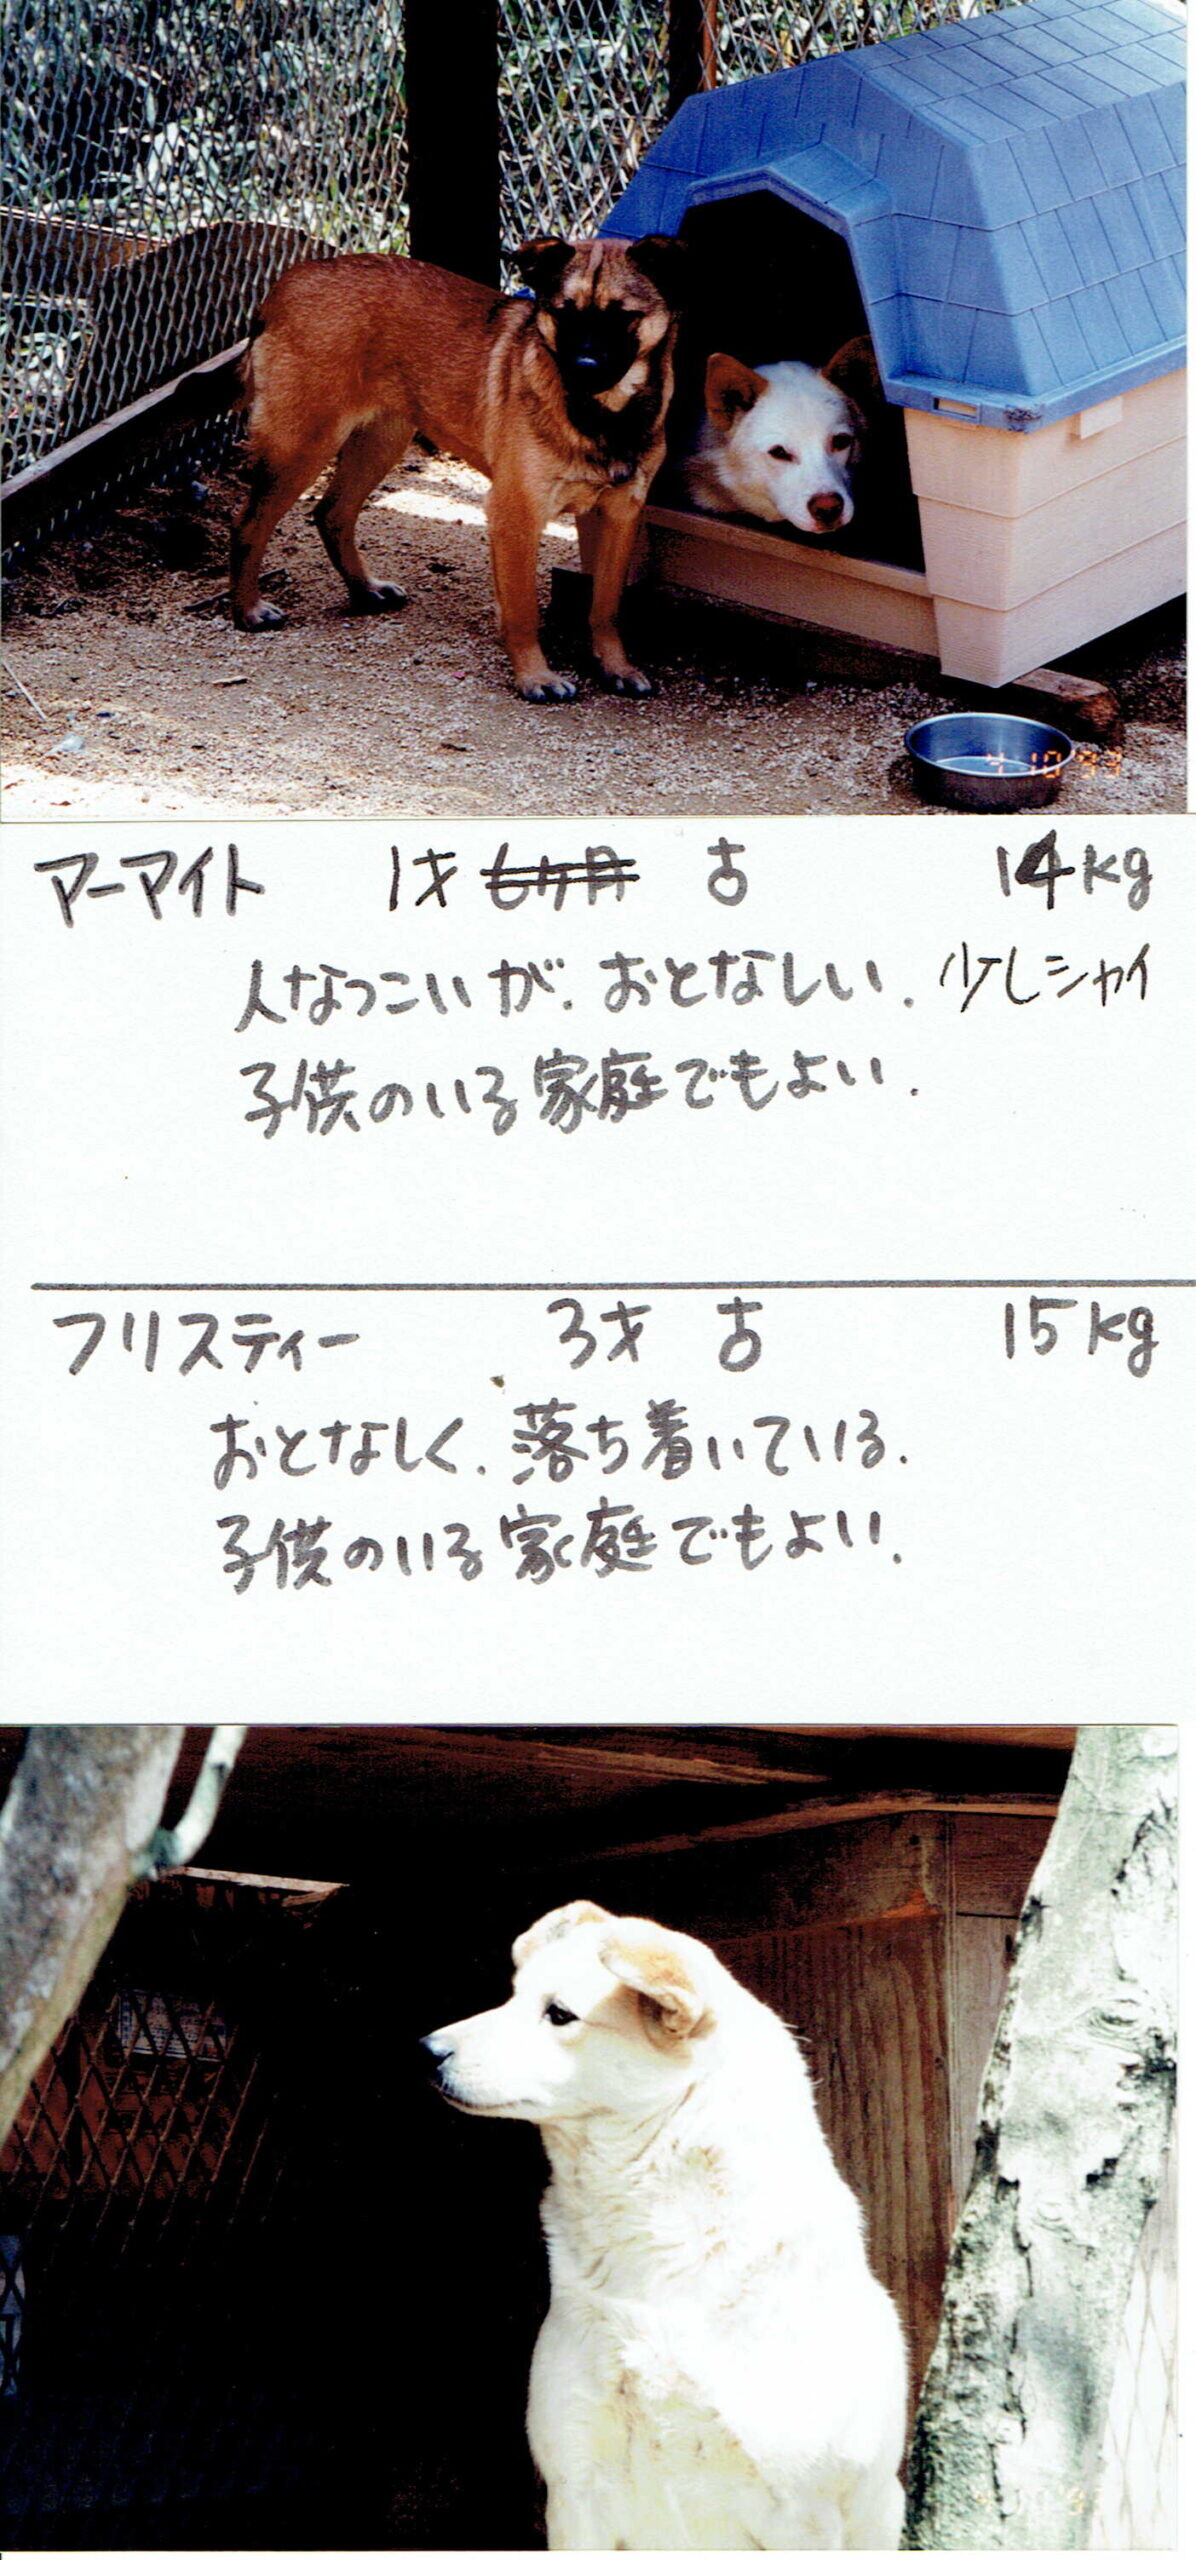 4 10 '93
マーマイト 1才 6ヶ月 ♂ 14kg
人なつこいが、おとなしい. 少しシャイ
子供のいる家庭でもよい.
フリスティー 3才 ♂ 15kg
おとなしく、落ち着いている.
子供のいる家庭でもよい.